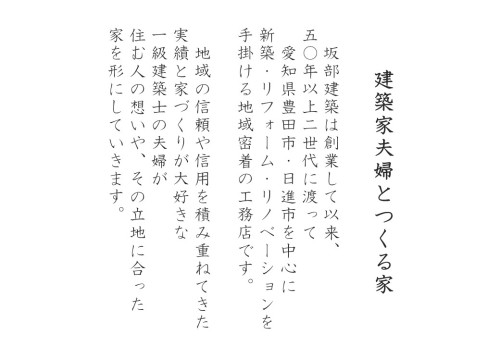 建築家夫婦とつくる家
坂部建築は創業して以来、
五〇年以上二世代に渡って
愛知県豊田市・日進市を中心に
新築・リフォーム・リノベーションを
手掛ける地域密着の工務店です。
地域の信頼や信用を積み重ねてきた
実績と家づくりが大好きな
一級建築士の夫婦が
住む人の想いや、その立地に合った
家を形にしていきます。